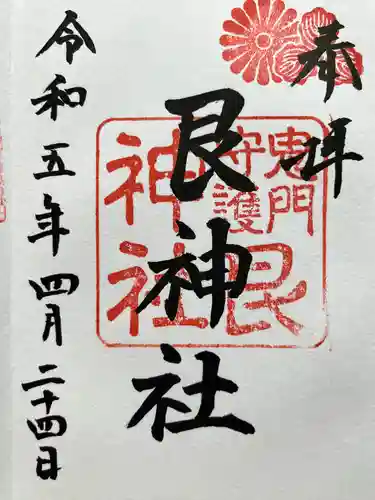 奉拝
鬼門
守護
艮
神社
艮神社
令和五年四月二十四日